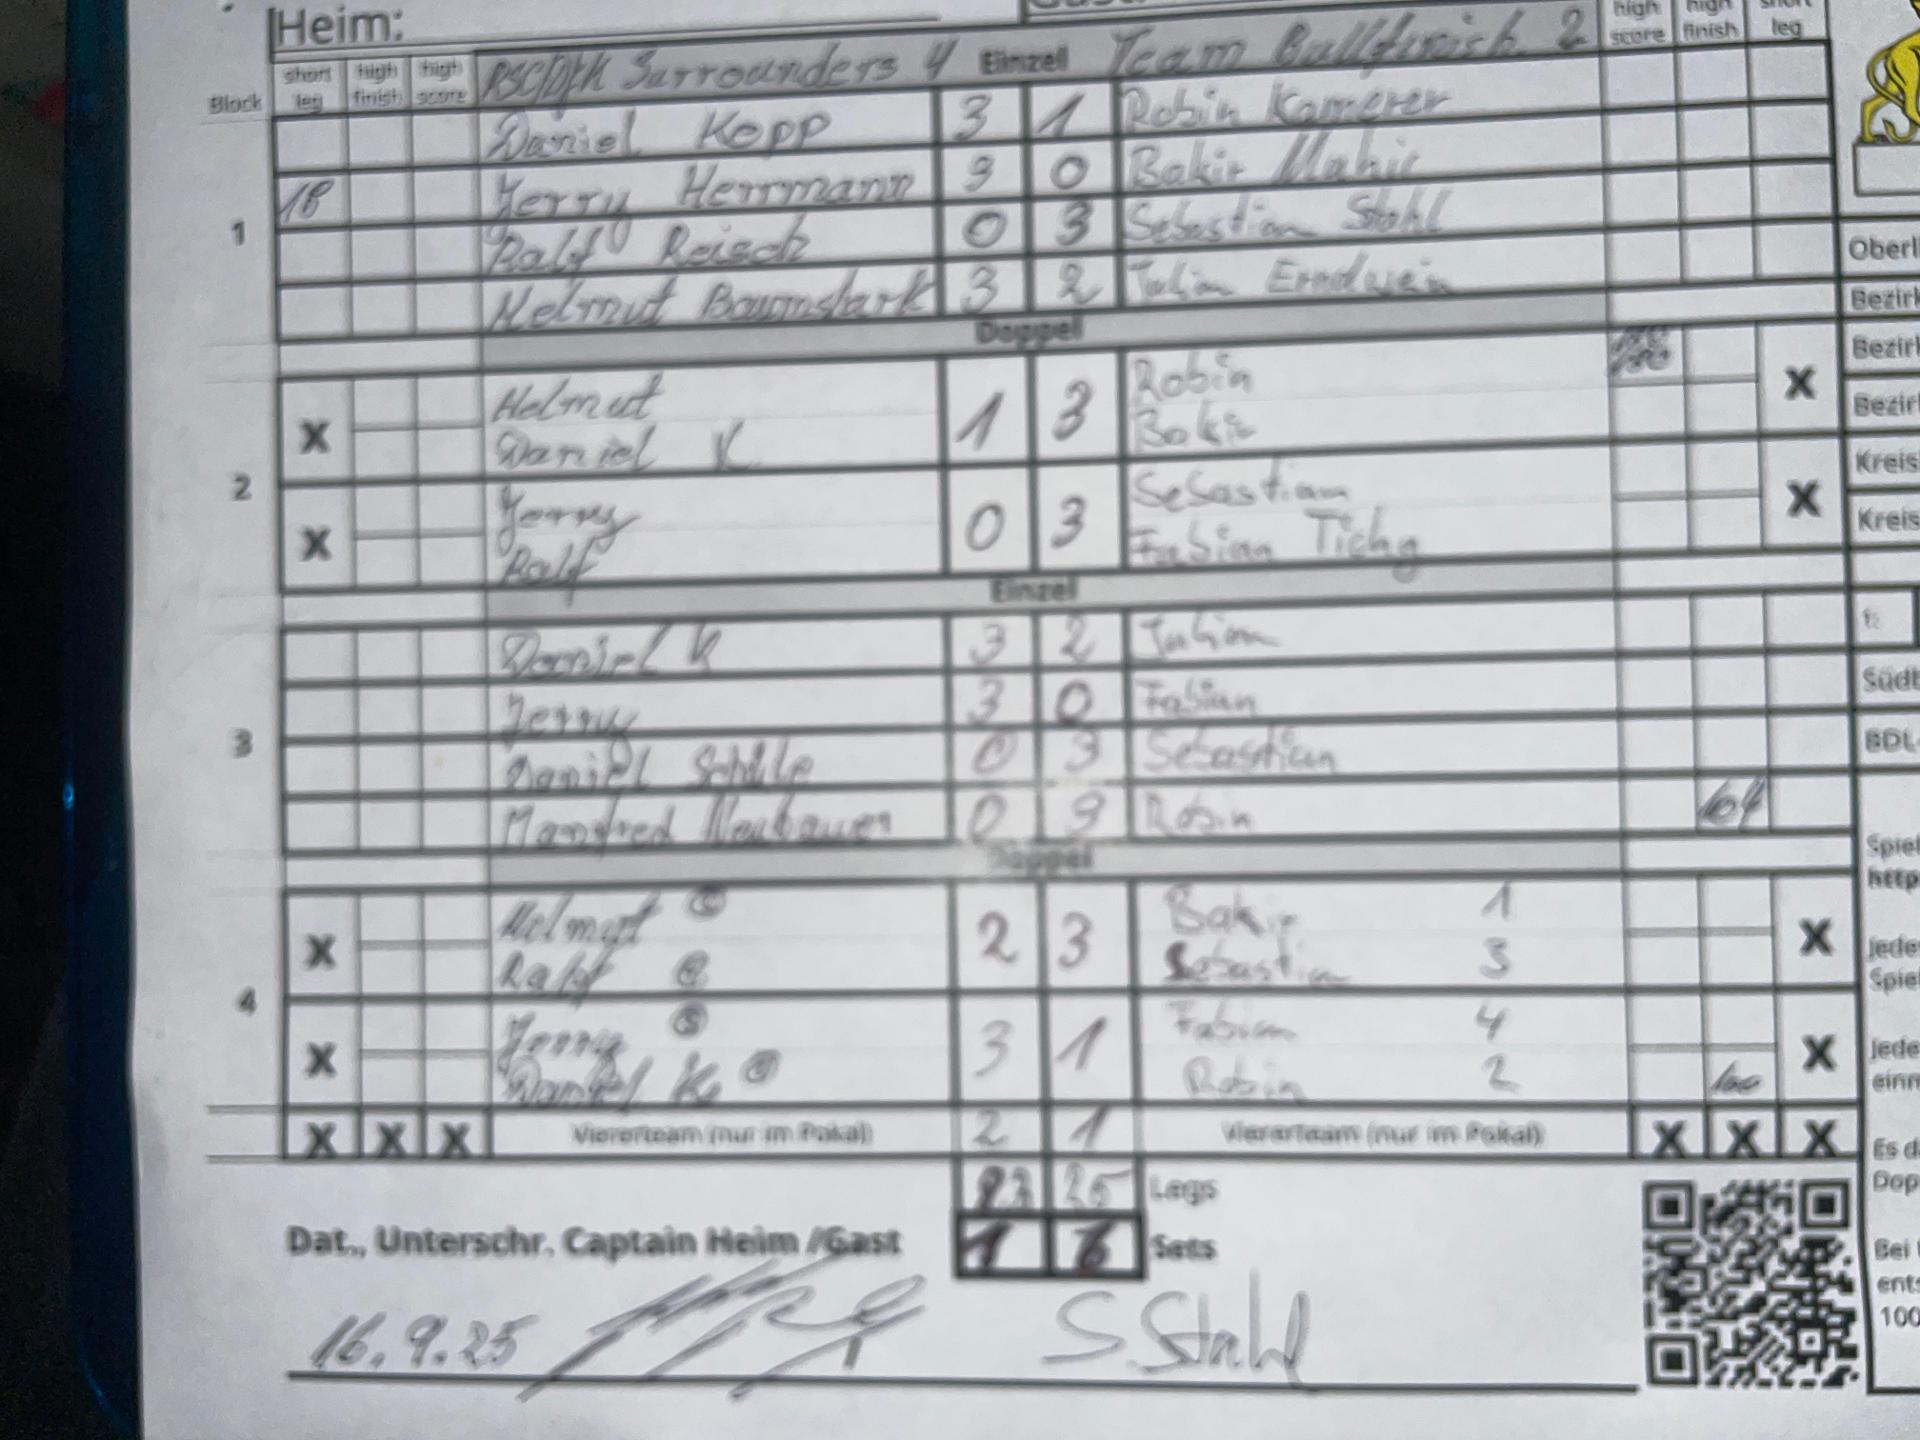 Heim:
high score high finish short leg
Block short leg high finish high score Surrounders 4 Einzel Team Bullfinish 2
Daniel Kopp 3 1 Robin Kamerer
18 Jerry Herrmann 3 0 Bakir Mahic
1 Ralf Reisch 0 3 Sebastian Stahl
Helmut Baumstark 3 2 Julian
Doppel
Helmut 1 3 Robin
X Daniel K Bakir X
2
Jerry 0 3 Sebastian
X Ralf Fabian Tichy X
Einzel
Daniel K 3 2 Julian
Jerry 3 0 Fabian
3 Daniel 0 3 Sebastian
Manfred Neubauer 0 3 Robin 104
Doppel
Helmut 2 3 Bakir 1
X Ralf Sebastian 3 X
4
Jerry 3 1 Fabian 4
X Daniel K. Robin 2 100 X
X X X Viererteam (nur im Pokal) 2 1 Viererteam (nur im Pokal) X X X
23 25 Legs
Dat., Unterschr. Captain Heim / Gast Sets
16.9.25 S. Stahl
Oberl
Bezirk
Bezirk
Bezir
Kreis
Kreis
Südb
BDL
Spiel
http
Jede
Spie
Jede
einm
Es d
Dop
Bei
ents
100